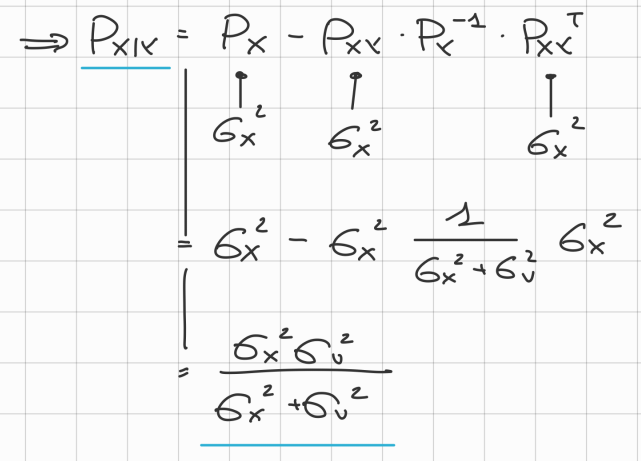 ⟹ P_{x|y} = P_x − P_{xy} · P_y^{-1} · P_{xy}^T
σ_x^2 σ_x^2 σ_x^2
= σ_x^2 − σ_x^2 \frac{1}{σ_x^2 + σ_v^2} σ_x^2
= \frac{σ_x^2 σ_v^2}{σ_x^2 + σ_v^2}